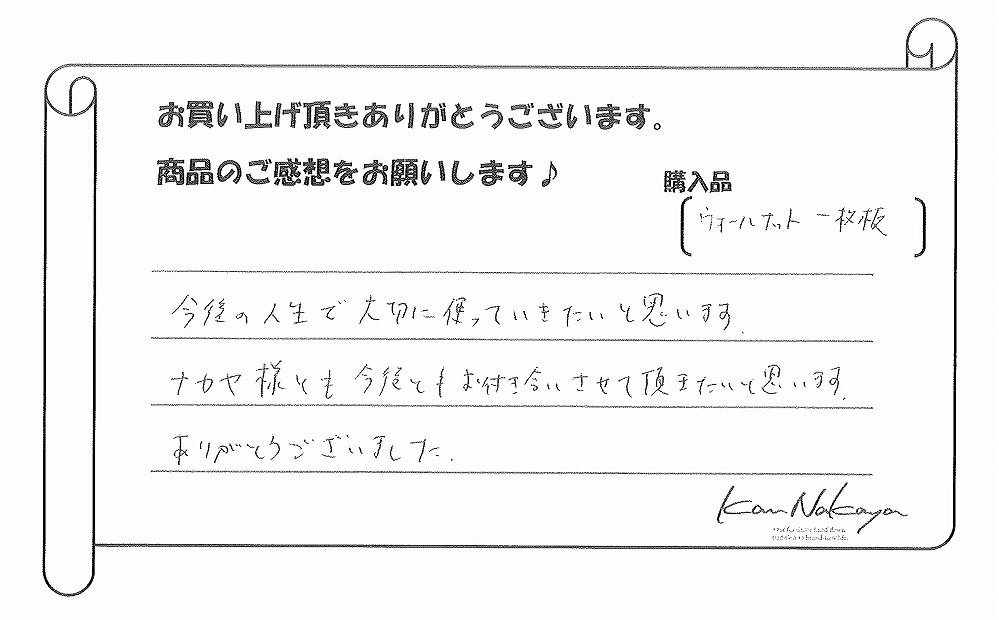 お買い上げ頂きありがとうございます。
商品のご感想をお願いします♪
購入品
ウォールナット 一枚板
今後の人生で大切に使っていきたいと思います.
ナカヤ様とも今後ともお付き合いさせて頂きたいと思います.
ありがとうございました.
Kan Nakaya